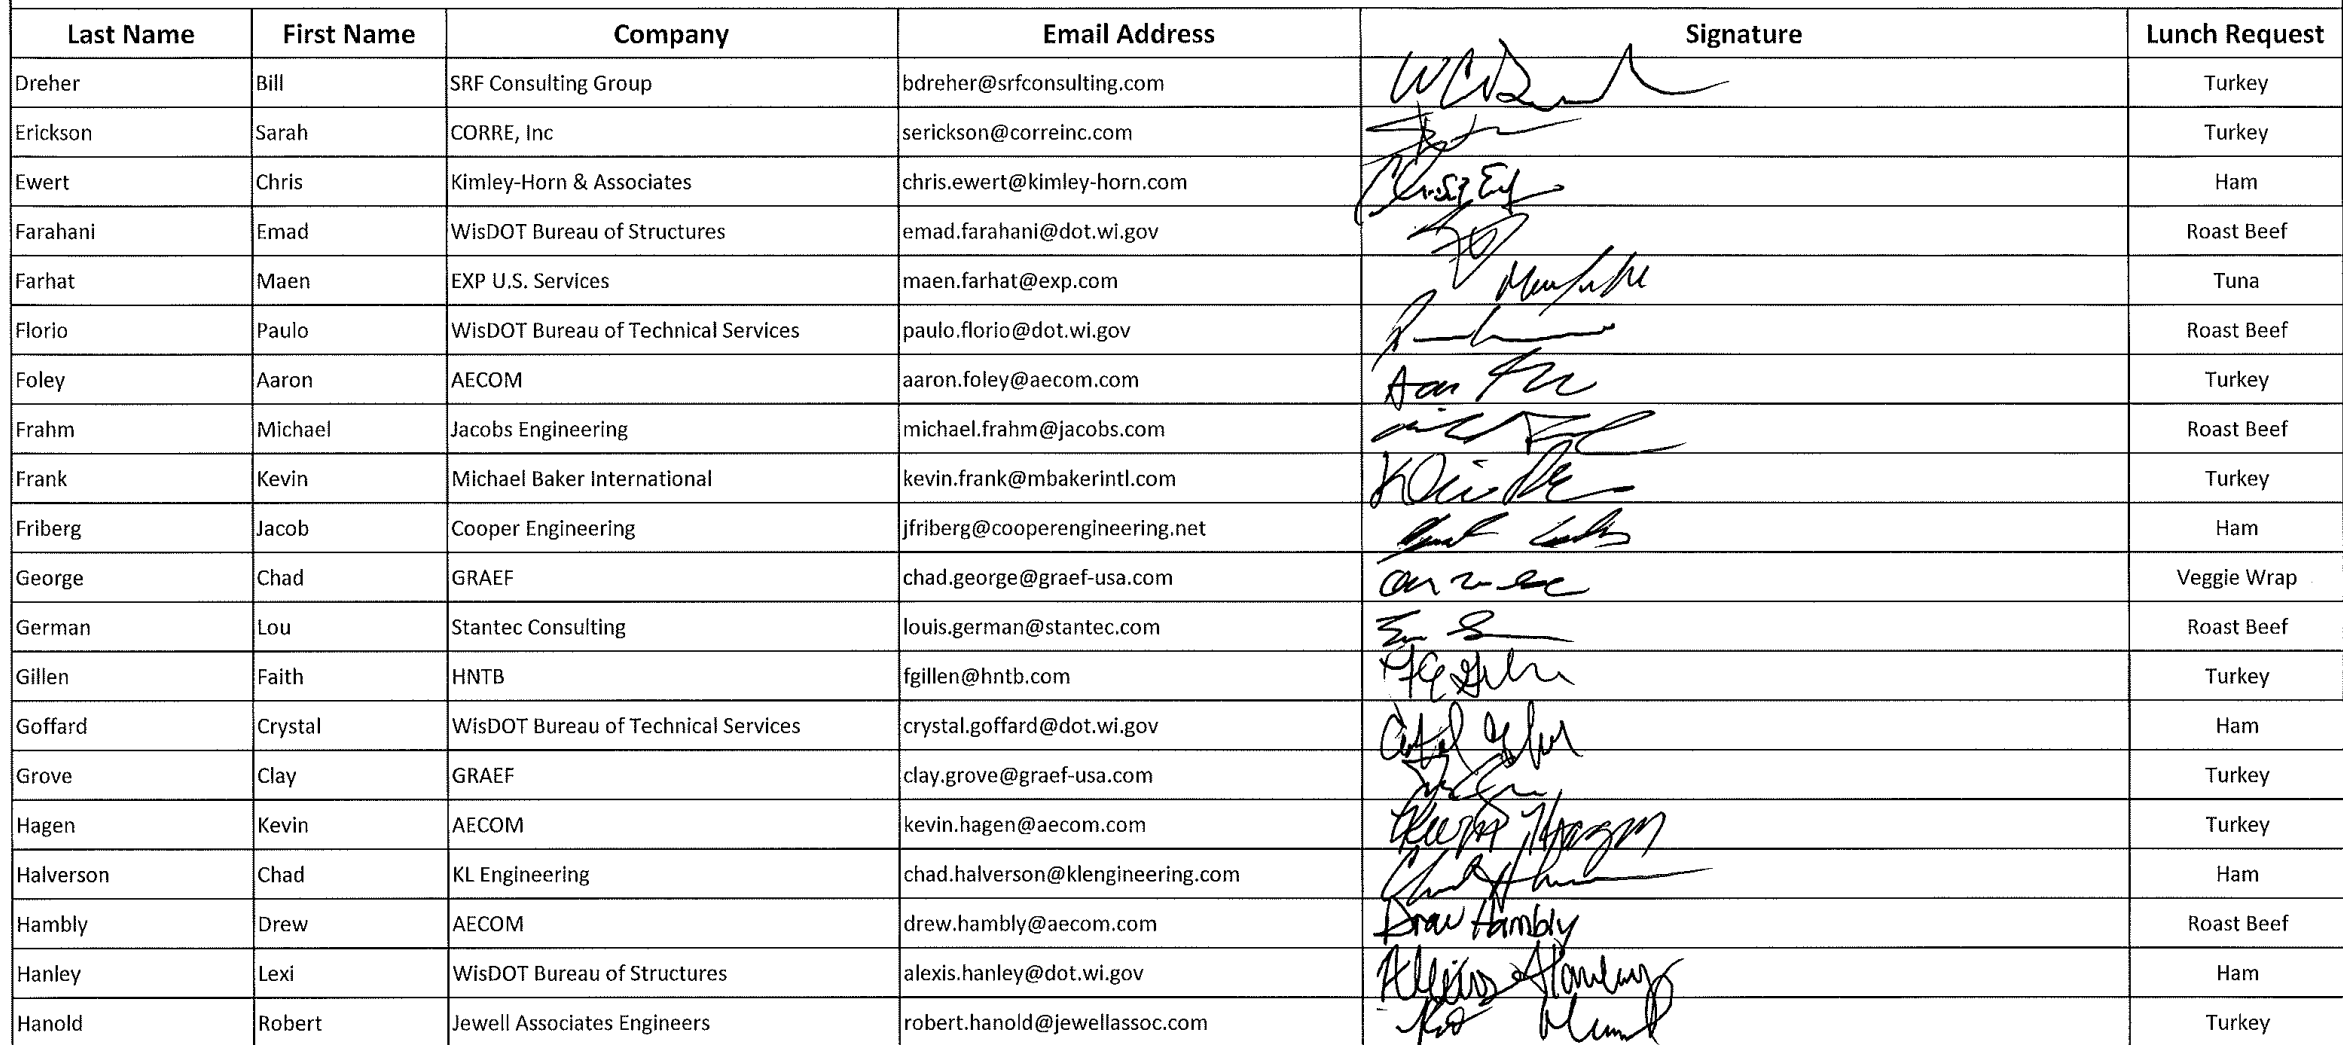 Last Name First Name Company Email Address Signature Lunch Request
Dreher Bill SRF Consulting Group bdreher@srfconsulting.com Turkey
Erickson Sarah CORRE, Inc serickson@correinc.com Turkey
Ewert Chris Kimley-Horn & Associates chris.ewert@kimley-horn.com Ham
Farahani Emad WisDOT Bureau of Structures emad.farahani@dot.wi.gov Roast Beef
Farhat Maen EXP U.S. Services maen.farhat@exp.com Tuna
Florio Paulo WisDOT Bureau of Technical Services paulo.florio@dot.wi.gov Roast Beef
Foley Aaron AECOM aaron.foley@aecom.com Turkey
Frahm Michael Jacobs Engineering michael.frahm@jacobs.com Roast Beef
Frank Kevin Michael Baker International kevin.frank@mbakerintl.com Turkey
Friberg Jacob Cooper Engineering jfriberg@cooperengineering.net Ham
George Chad GRAEF chad.george@graef-usa.com Veggie Wrap
German Lou Stantec Consulting louis.german@stantec.com Roast Beef
Gillen Faith HNTB fgillen@hntb.com Turkey
Goffard Crystal WisDOT Bureau of Technical Services crystal.goffard@dot.wi.gov Ham
Grove Clay GRAEF clay.grove@graef-usa.com Turkey
Hagen Kevin AECOM kevin.hagen@aecom.com Kevin Hagen Turkey
Halverson Chad KL Engineering chad.halverson@klengineering.com Ham
Hambly Drew AECOM drew.hambly@aecom.com Drew Hambly Roast Beef
Hanley Lexi WisDOT Bureau of Structures alexis.hanley@dot.wi.gov Alexis Hanley Ham
Hanold Robert Jewell Associates Engineers robert.hanold@jewellassoc.com Turkey